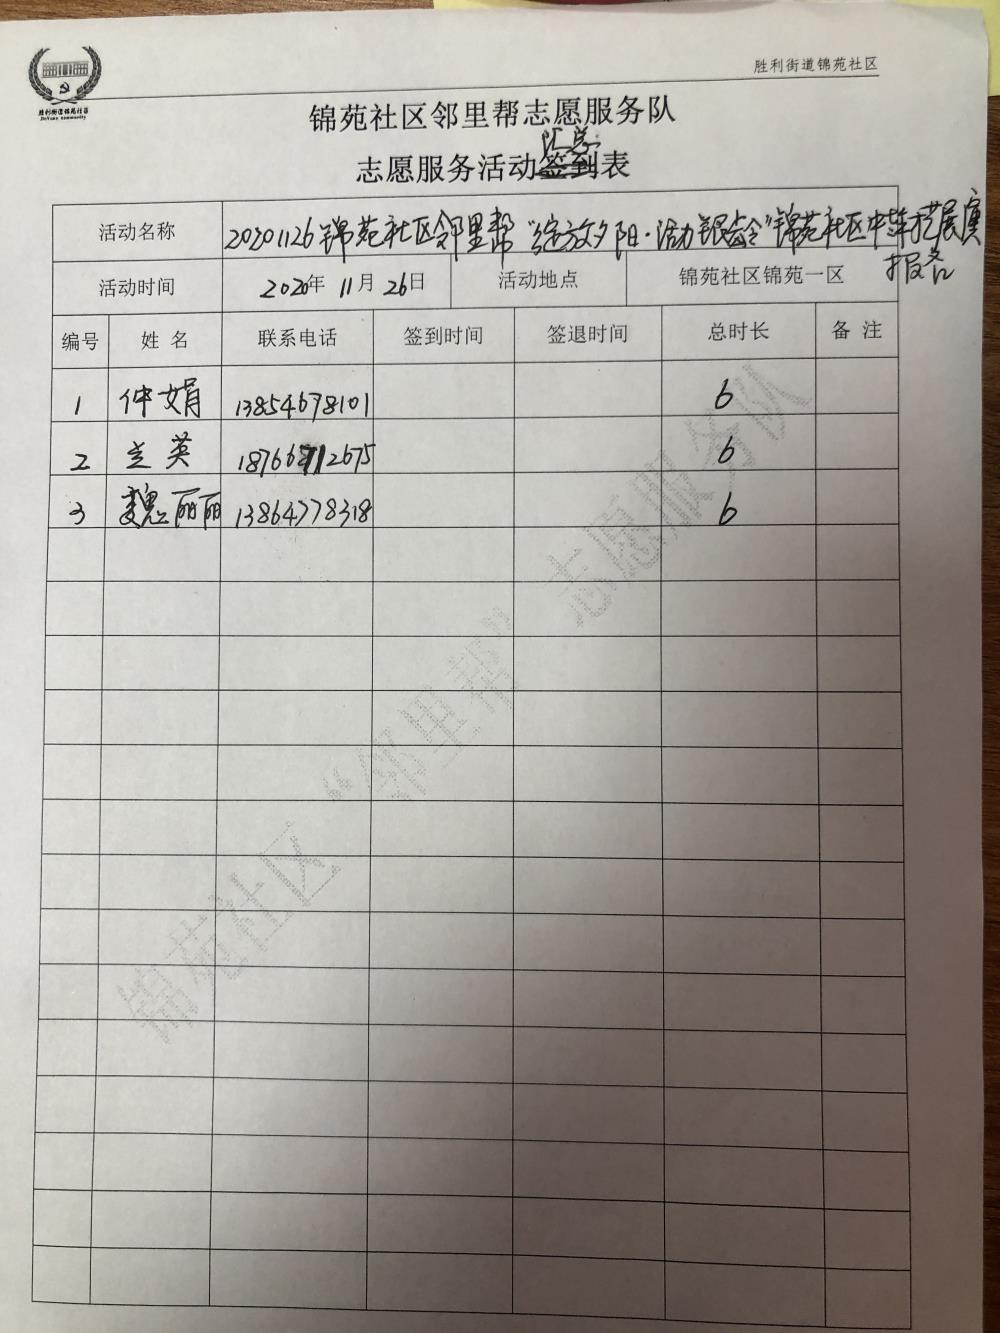 胜利街道锦苑社区
胜利街道锦苑社区
锦苑社区邻里帮志愿服务队
汇总
志愿服务活动签到表
活动名称 20201126锦苑社区邻里帮"绽放夕阳·活力银龄"锦苑社区中华才艺展演
报名
活动时间 2020年 11月 26日 活动地点 锦苑社区锦苑一区
编号 姓 名 联系电话 签到时间 签退时间 总时长 备 注
1 仲文娟 13854678101 6
2 英 6
3 魏丽丽 13864778318 6
锦苑社区 “邻里帮” 志愿服务队